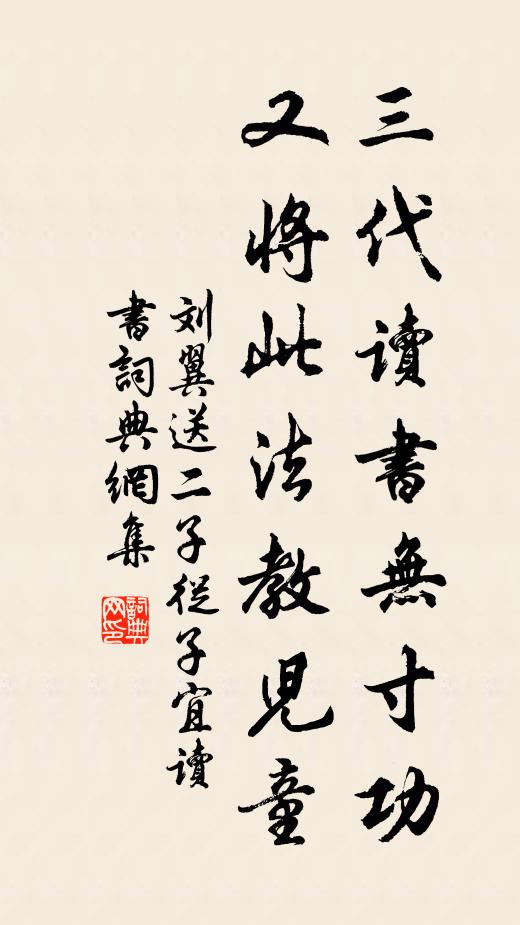 三代讀書無寸功
又將此法教兒童
刘翼送二子從子宜讀
書詞典網集
詞典
网印